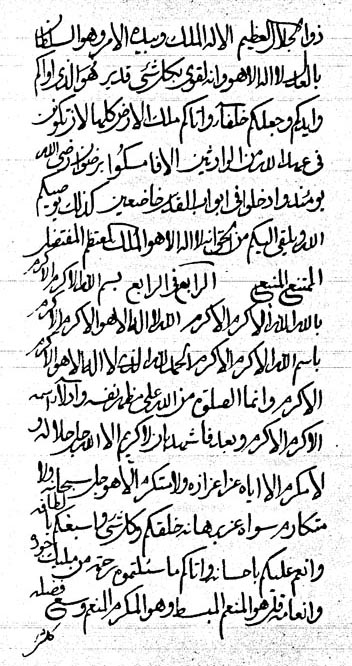 ذو الجلال العظيم الا له الملك وبيده الامر وهو السلطان
بالعدل لا اله الا هو وانه لقوي بكل شئ قدير هو الذي اواكم
وايدكم وجعلكم خلفآء واتاكم ملك الارض كلها لان تكونن
في عند الله من الوارثين الا فاسكنوا برضوان رضى الله
يومئذ وادخلوا في ابواب القدس خاضعين كذلك يوصيكم
الله ويلقي اليكم من لا اله الا هو الملك المقتدر
الممتنع المنيع الرابع في الرابع بسم الله الاكرم الاكرم
بالله الله الاكرم الاكرم الله لا اله الا هو الاكرم الاكرم
باسم الله الاكرم الاكرم الحمد لله الذي لا اله الا هو الاكرم
الاكرم وانما الصلوة من الله على مظهر نفسه وادلآء امره
الاكرم الاكرم وبعد فاشهد بان لا كريم الا الله جل جلاله و
لا مكرم الا اياه عز اعزازه ولا متكرم الا هو جل سبحانه ولا
متكارم سواه عز برهانه خلقكم وكل شئ واسبغكم بالطافه
وانعم عليكم باحسانه واتاكم ما سئلتموه من مليك جوده
وانعامه قل هو المنعم المبسط وهو المكرم المنعم وسع فضله
كل شئ